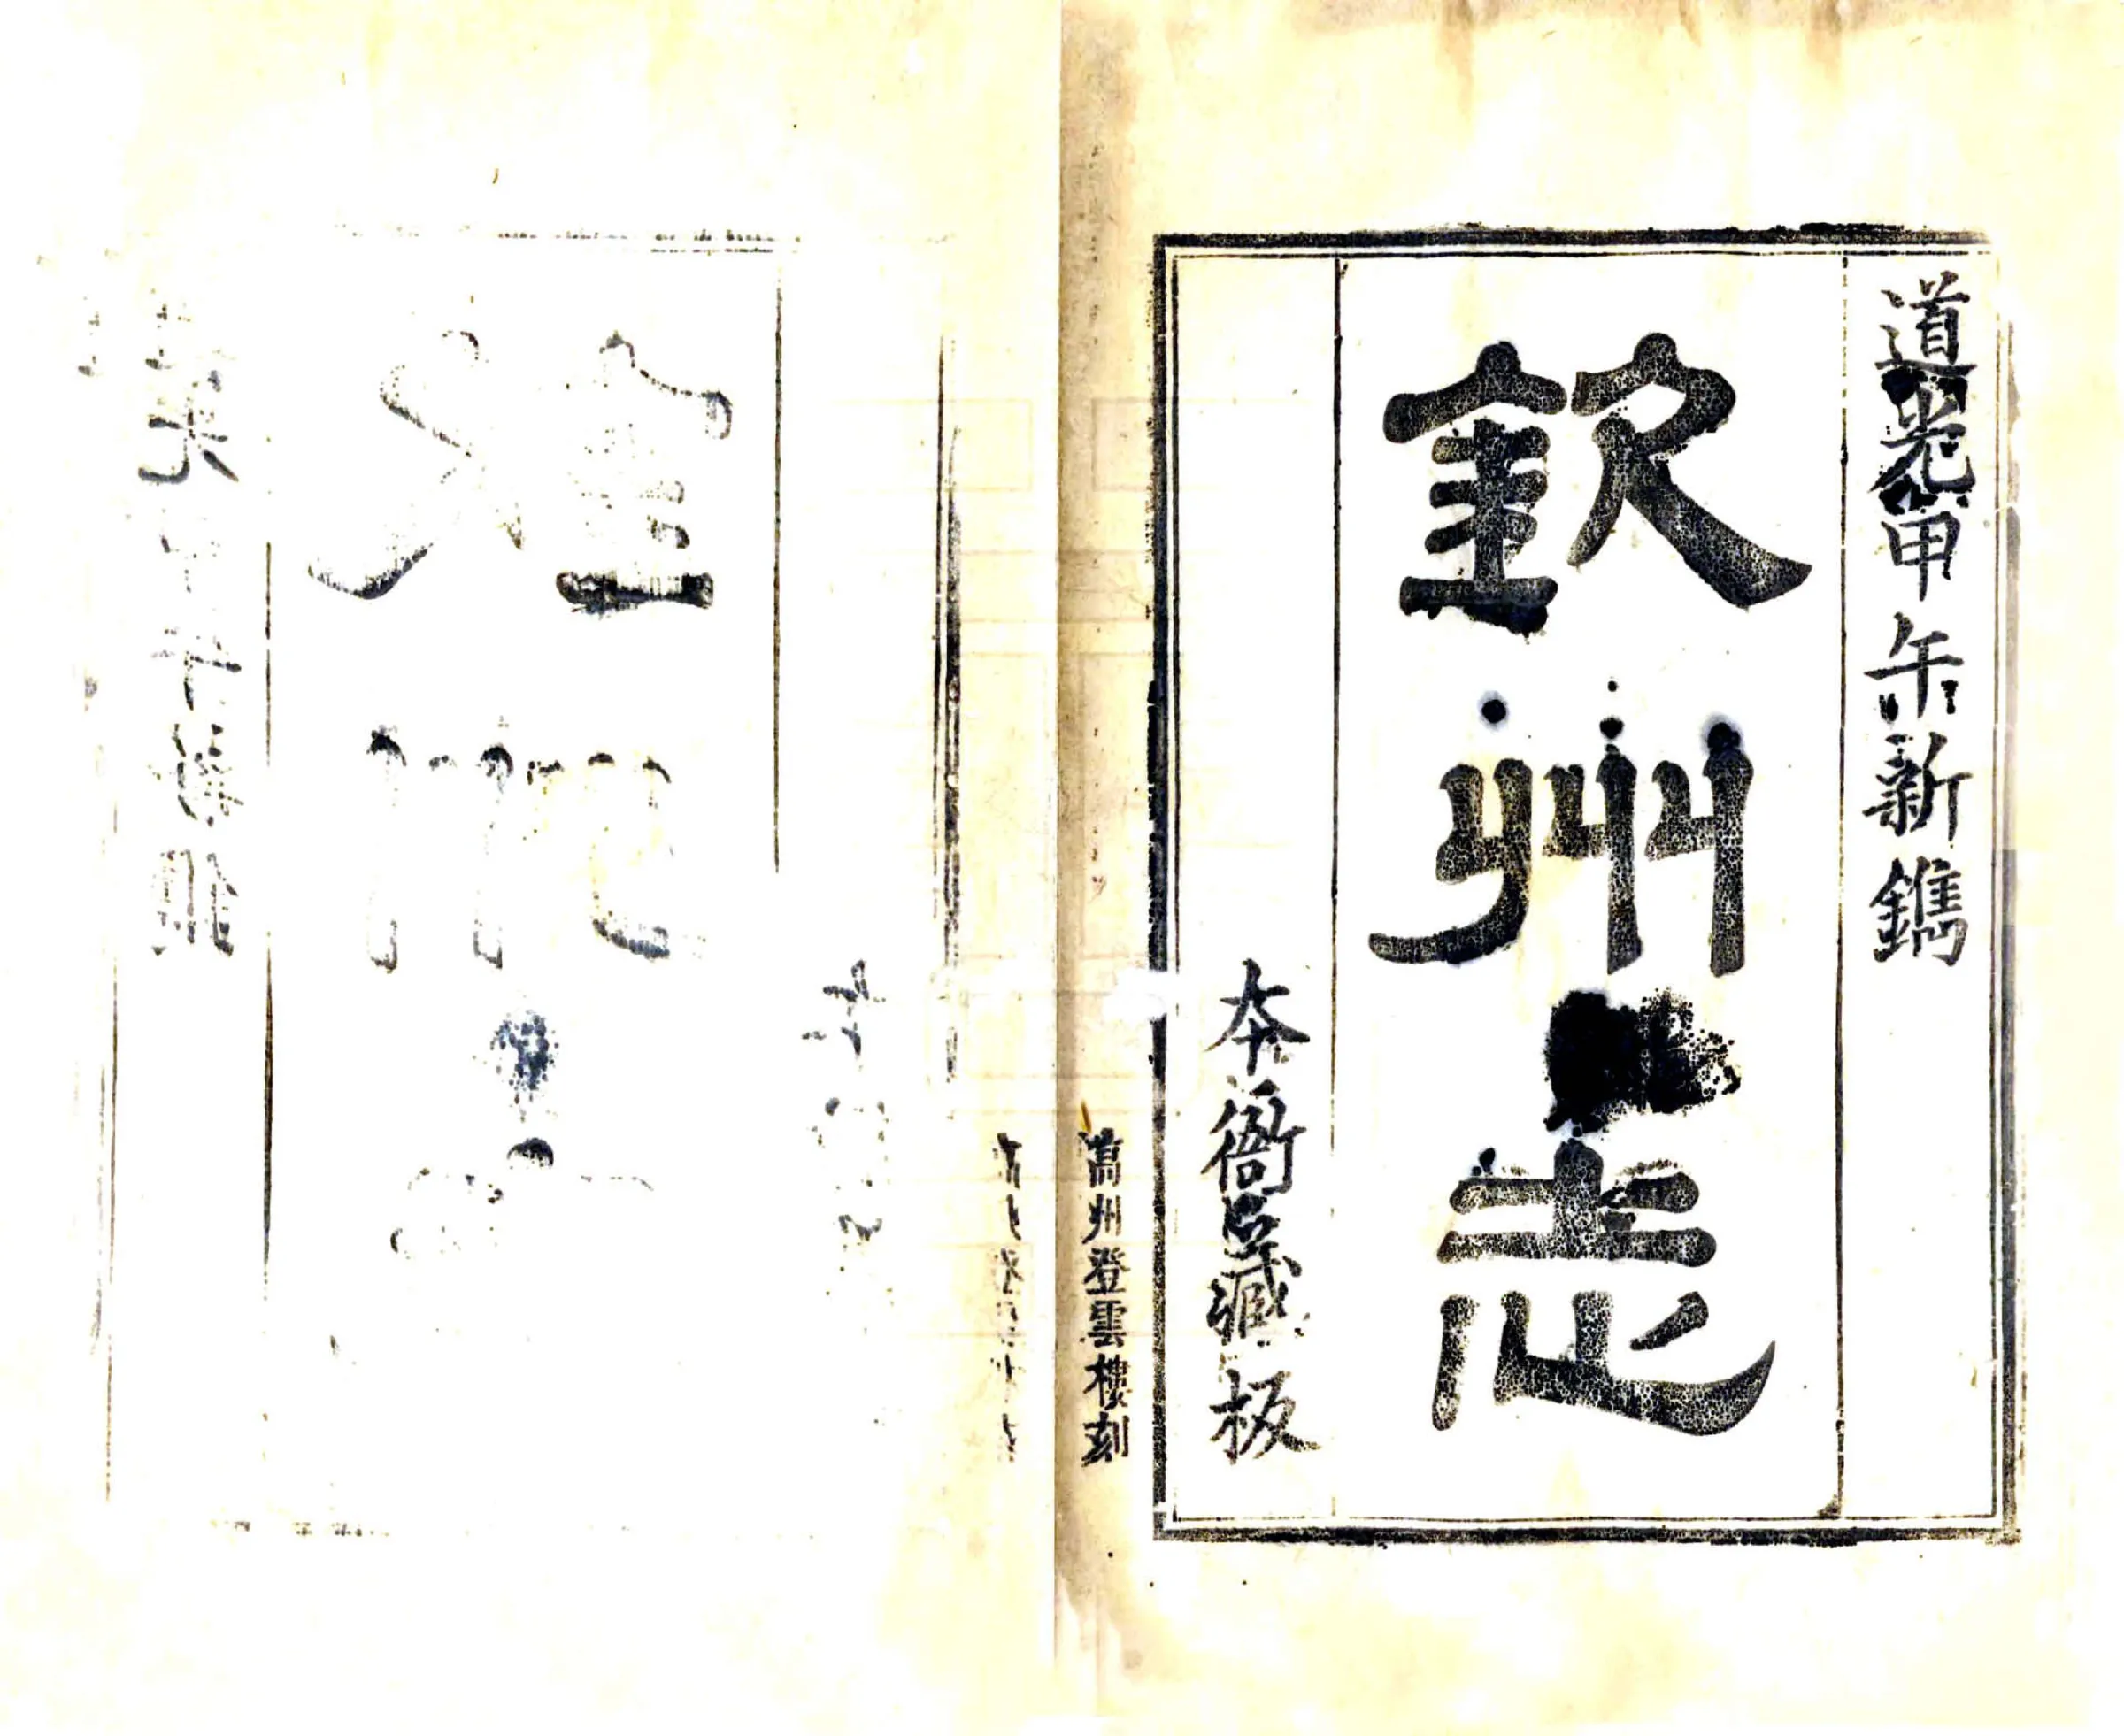 道光甲午新鐫
欽州志
本衙藏板
高州登雲樓刻